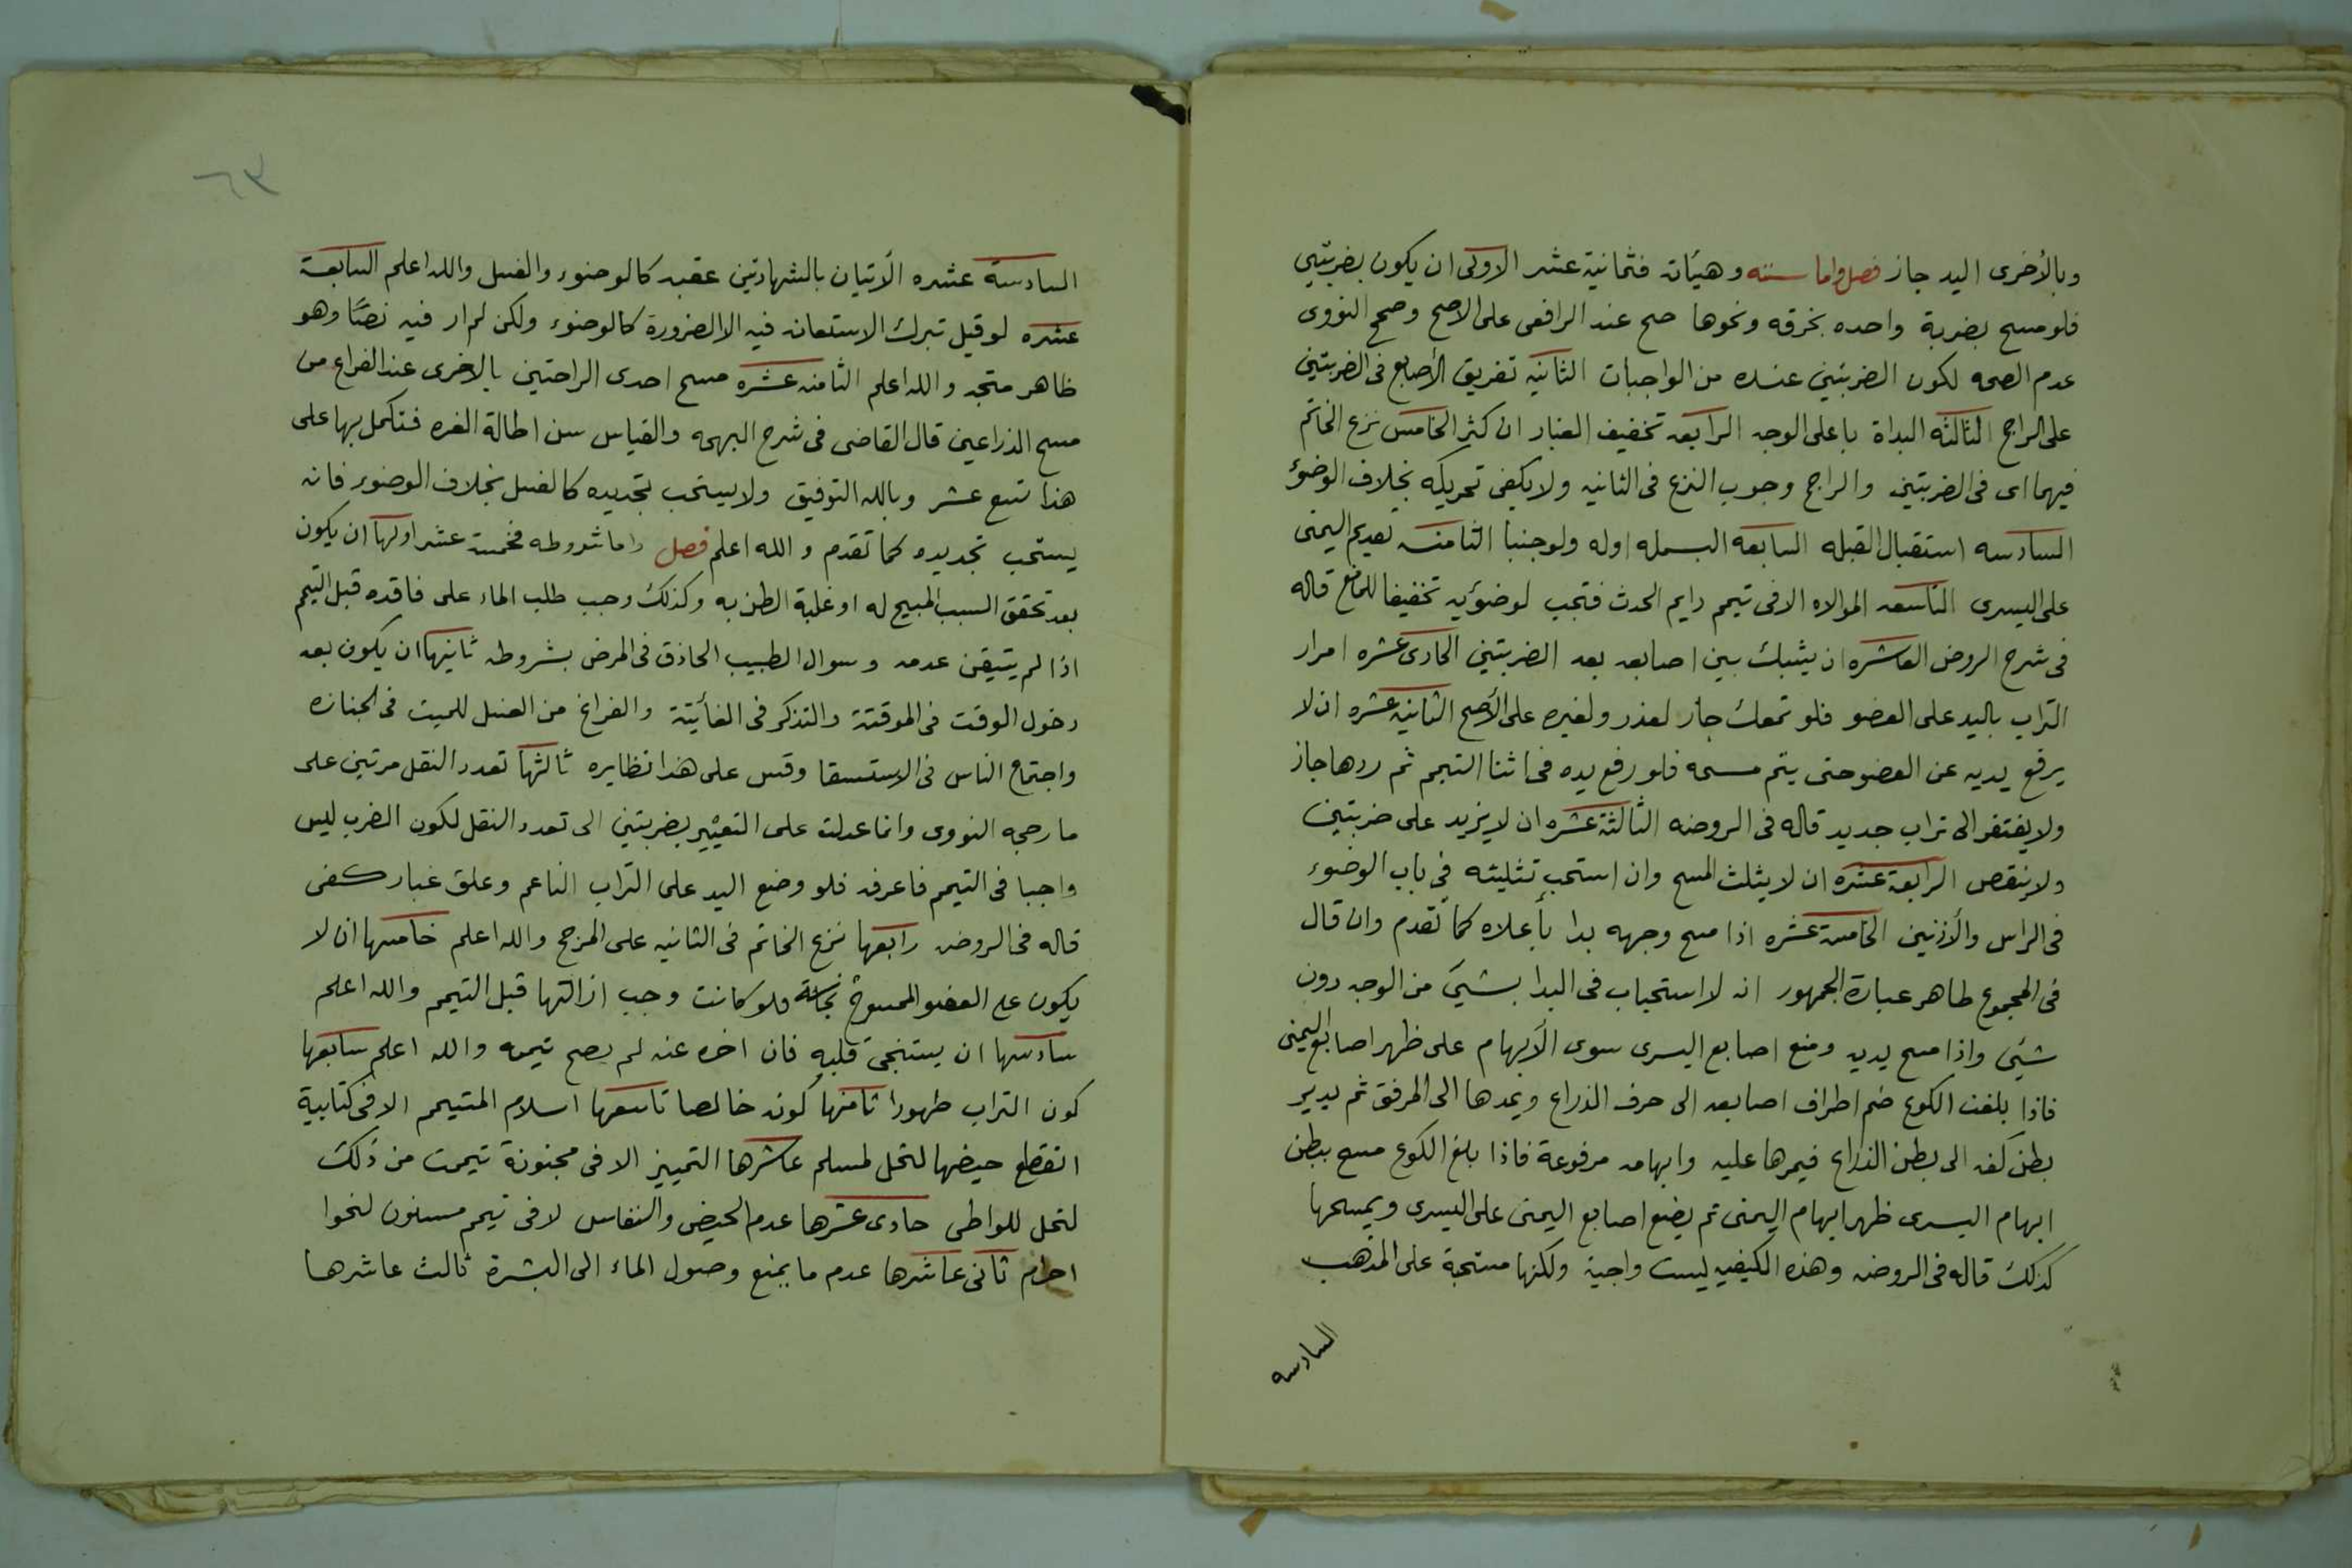 وبالأخرى اليد جاز فصل واما سننه وهيئات فثمانية عشر الاولى ان يكون بضربتين
فلو مسح بضربة واحده بخرقه ونحوها صح عند الرافعى على الاصح وصحح النووى
عدم الصحه لكون الضربتين عنده من الواجبات الثانيه تفريق الأصابع فى الضربتين
على الراجح الثالثه البداة باعلى الوجه الرابعه تخفيف الغبار ان كثر الخامس نزع الخاتم
فيهما اى فى الضربتين والراجح وجوب النزع فى الثانيه ولا يكفى تحريكه بخلاف الوضؤ
السادسه استقبال القبله السابعه البسمله اوله ولو جنبا الثامنه تقديم اليمنى
على اليسرى التاسعه الموالاه الا فى تيمم دايم الحدث فتجب لوضوئه تخفيفا للمانع قاله
فى شرح الروض العاشره ان يشبك بين اصابعه بعد الضربتين الحادى عشره امرار
التراب باليد على العضو فلو تمعك جاز لعذر ولغيره على الأصح الثانية عشره ان لا
يرفع يديه عن العضو حتى يتم مسحه فلو رفع يده فى اثنا التيمم ثم ردها جاز
ولا يفتقر الى تراب جديد قاله فى الروضه الثالثة عشره ان لا يزيد على ضربتين
ولا ينقص الرابعة عشره ان لا يثلث المسح وان استحب تثليثه فى باب الوضوء
فى الراس والأذنين الخامسة عشره اذا مسح وجهه بدا بأعلاه كما تقدم وان قال
فى المجموع ظاهر عبارة الجمهور انه لا استحباب فى البدا بشئ من الوجه دون
شئ واذا مسح يديه وضع اصابع اليسرى سوى الأبهام على ظهر اصابع اليمنى
فاذا بلغت الكوع ضم اطراف اصابعه الى حرف الذراع ويمدها الى المرفق ثم يدير
بطن كفه الى بطن الذراع فيمرها عليه وابهامه مرفوعة فاذا بلغ الكوع مسح ببطن
ابهام اليسرى ظهر ابهام اليمنى ثم يضع اصابع اليمنى على اليسرى ويمسحها
كذلك قاله فى الروضه وهذه الكيفيه ليست واجبة ولكنها مستحبة على المذهب
السادسه
٦٣
السادسة عشره الأتيان بالشهادتين عقبه كالوضوء والغسل والله اعلم السابعة
عشره لو قيل تبرك الاستعانه فيه الا لضرورة كالوضوء ولكن لم ار فيه نصًّا وهو
ظاهر متجه والله اعلم الثامنه عشره مسح احدى الراحتين بالاخرى عند الفراغ من
مسح الذراعين قال القاضى فى شرح البهجه والقياس سن اطالة الغره فتكمل بها على
هذا تسع عشر وبالله التوفيق ولا يستحب تجديده كالغسل بخلاف الوضوء فانه
يستحب تجديده كما تقدم والله اعلم فصل واما شروطه فخمسة عشر اولها ان يكون
بعد تحقق السبب المبيح له او غلبة الظن به وكذلك وجب طلب الماء على فاقده قبل التيمم
اذا لم يتيقن عدمه وسوال الطبيب الحاذق فى المرض بشروطه ثانيها ان يكون بعد
دخول الوقت فى الموقتة والتذكر فى الفائتة والفراغ من الغسل للميت فى الجنازه
واجتماع الناس فى الاستسقا وقس على هذا نظايره ثالثها تعدد النقل مرتين على
ما رجحه النووى وانما عدلت على التعبير بضربتين الى تعدد النقل لكون الضرب ليس
واجبا فى التيمم فاعرفه فلو وضع اليد على التراب الناعم وعلق غبار كفى
قاله فى الروضه رابعها نزع الخاتم فى الثانيه على المرجح والله اعلم خامسها ان لا
يكون على العضو الممسوح نجاسة فلو كانت وجب ازالتها قبل التيمم والله اعلم
سادسها ان يستنجى قبله فان اخره عنه لم يصح تيممه والله اعلم سابعها
كون التراب طهورا ثامنها كونه خالصا تاسعها اسلام المتيمم الا فى كتابية
انقطع حيضها لتحل لمسلم عاشرها التمييز الا فى مجنونة تيممت من ذلك
لتحل للواطى حادى عشرها عدم الحيض والنفاس لا فى تيمم مسنون لنحوا
احرام ثانى عاشرها عدم ما يمنع وصول الماء الى البشرة ثالث عاشرها